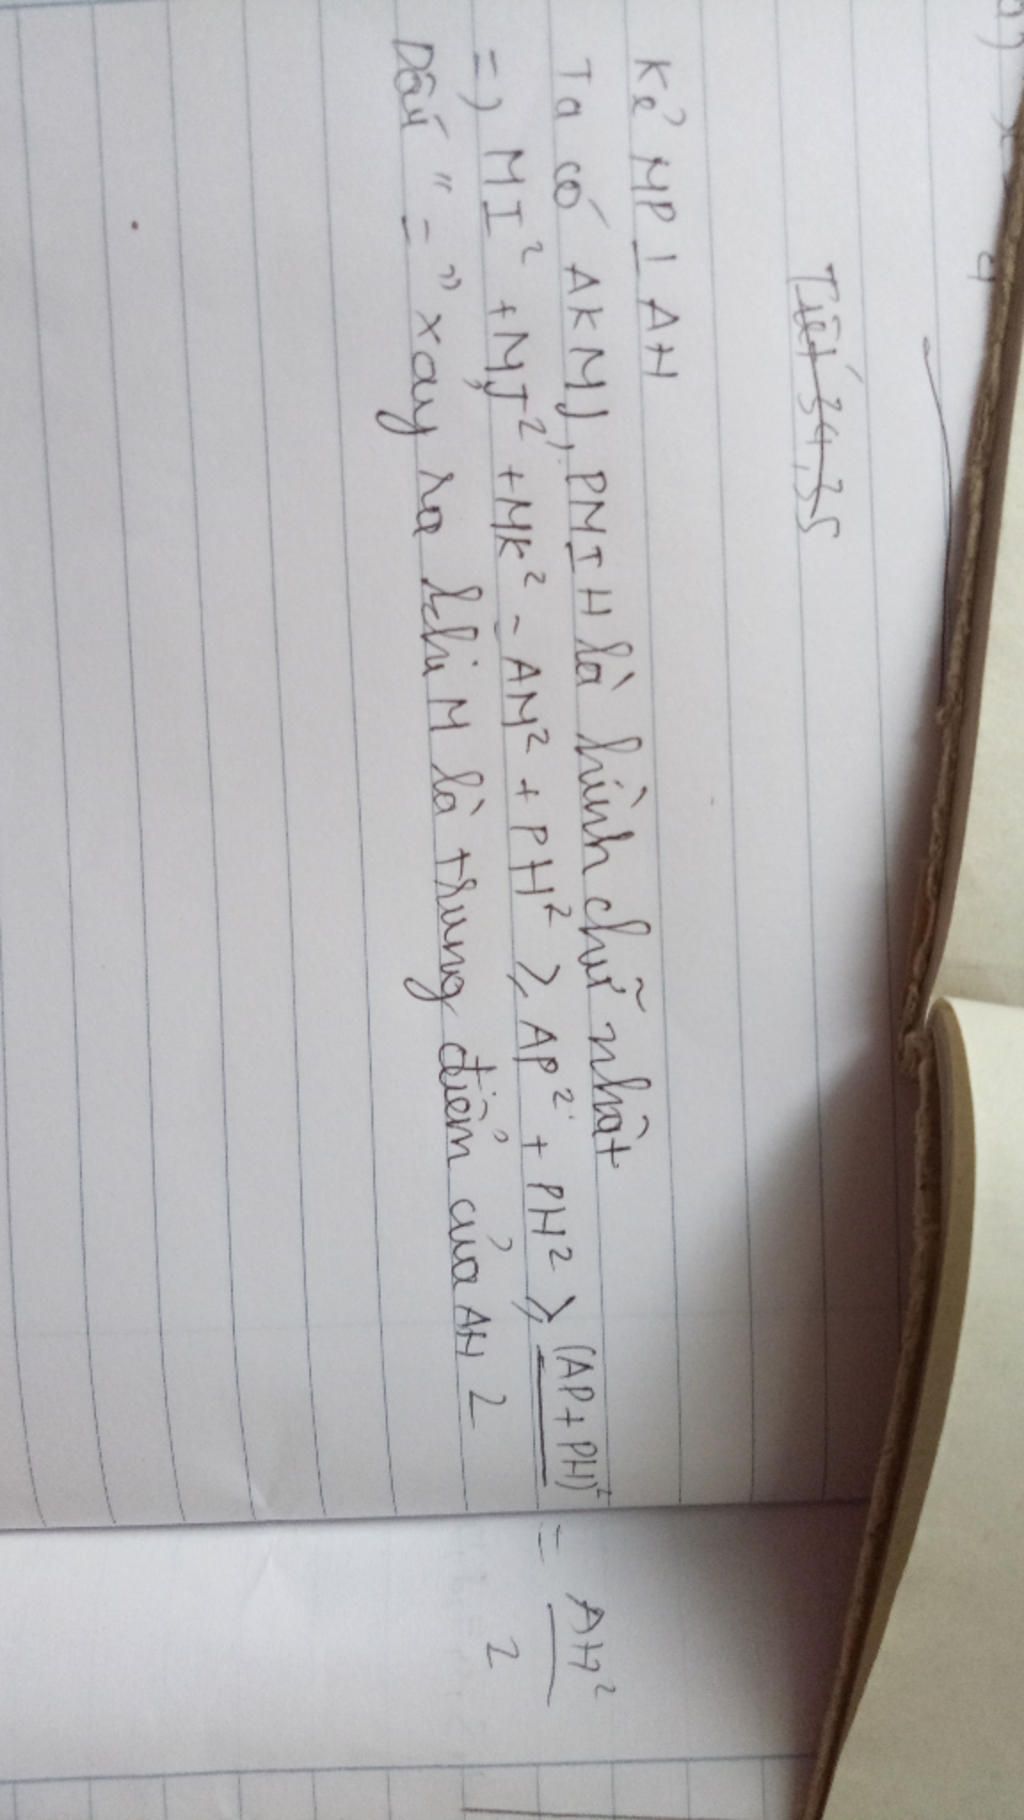 Tiết 34,35
Kẻ MP ⊥ AH
Ta có AKMJ, PMIH là hình chữ nhật
=> MI² + MJ² + MK² = AM² + PH² ≥ AP² + PH² ≥ (AP+PH)²/2 = AH²/2
Dấu "=" xảy ra khi M là trung điểm của AH